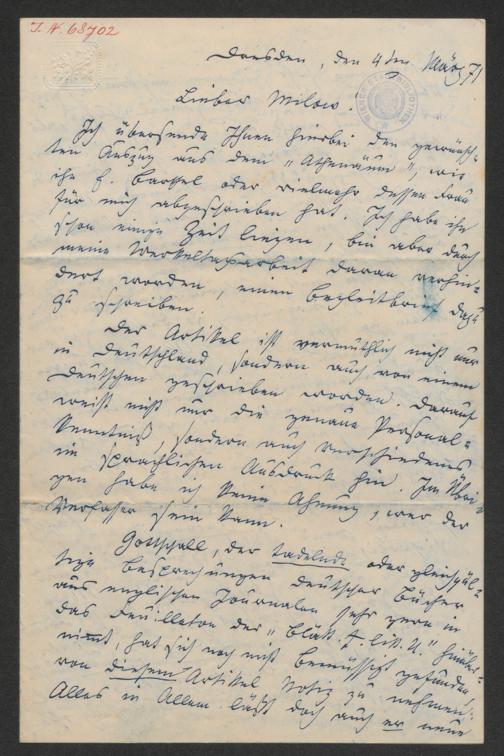 I. N. 68702
Dresden, den 4ten März 71
Lieber Milow.
Ich übersende Ihnen hierbei den gewünsch-
ten Auszug aus dem „Athenäum", wie
ihn H. Bartsch oder vielmehr dessen Frau
für mich abgeschrieben hat. Ich habe ihn
schon einige Zeit liegen, bin aber durch
meine Werkeltagsarbeit daran verhin-
dert worden, einen Begleitbrief dazu
zu schreiben.
Der Artikel ist vermuthlich nicht nur
in Deutschland, sondern auch von einem
Deutschen geschrieben worden. Darauf
weist nicht nur die genaue Personal-
kenntniß, sondern auch verschiedenes
im sprachlichen Ausdruck hin. Im Übri-
gen habe ich keine Ahnung, wer der
Verfasser sein kann.
Gottschall, der tadelnde oder gleichgül-
tige Besprechungen deutscher Bücher
aus englischen Journalen sehr gern in
das Feuilleton der „Blätt. f. lit. U." hinüber-
nimmt, hat sich noch nicht bemüssigt gefunden,
von diesem Artikel Notiz zu nehmen.
Alles in Allem läßt doch auch er neue